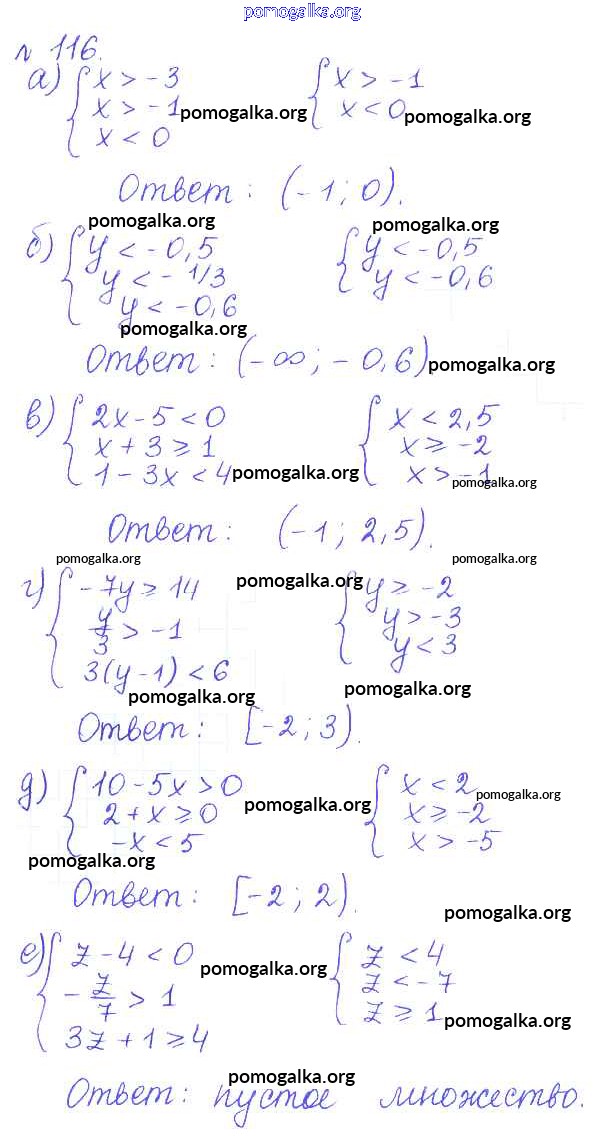 pomogalka.org
№ 116.
а) { x > -3 { x > -1
x > -1 pomogalka.org x < 0 pomogalka.org
x < 0
Ответ: (-1; 0).
pomogalka.org pomogalka.org
б) { y < -0,5 { y < -0,5
y < -1/3 y < -0,6
y < -0,6
pomogalka.org
Ответ: (-∞; -0,6) pomogalka.org
в) { 2x - 5 < 0 { x < 2,5
x + 3 ≥ 1 x ≥ -2
1 - 3x < 4 pomogalka.org x > -1 pomogalka.org
Ответ: (-1; 2,5).
pomogalka.org pomogalka.org pomogalka.org
г) { -7y ≥ 14 { y ≥ -2
y/3 > -1 y > -3
3(y-1) < 6 y < 3
pomogalka.org pomogalka.org
Ответ: [-2; 3).
д) { 10 - 5x > 0 { x < 2 pomogalka.org
2 + x ≥ 0 pomogalka.org x ≥ -2
-x < 5 x > -5
pomogalka.org
Ответ: [-2; 2).
pomogalka.org
е) { z - 4 < 0 { z < 4
-z/7 > 1 pomogalka.org z < -7
3z + 1 ≥ 4 z ≥ 1 pomogalka.org
pomogalka.org
Ответ: пустое множество.